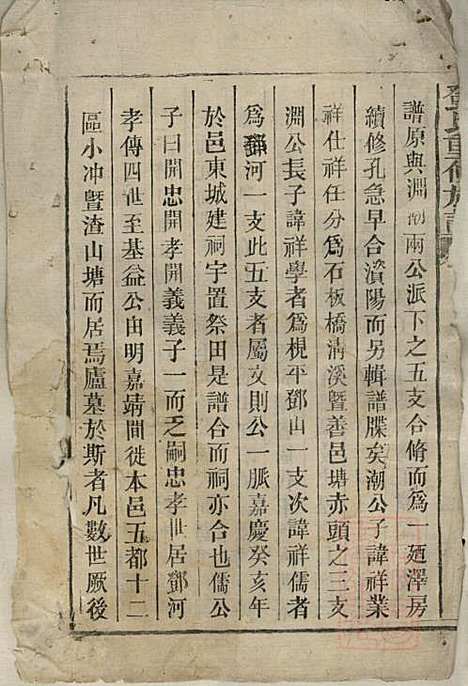 鄧氏重修族譜
譜原與淵潮兩公派下之五支合脩而爲一廼澤房
續修孔急早合濱陽而另輯譜牒矣潮公子諱祥業
祥仕祥任分爲石板橋淸溪曁善邑塘赤頭之三支
淵公長子諱祥學者爲梘平鄧山一支次諱祥儒者
爲鄧河一支此五支者屬文則公一脈嘉慶癸亥年
於邑東城建祠宇置祭田是譜合而祠亦合也儒公
子曰開忠開孝開義義子一而乏嗣忠孝世居鄧河
孝傳四世至基益公由明嘉靖間徙本邑五都十二
區小冲曁渣山塘而居焉廬墓於斯者凡數世厥後